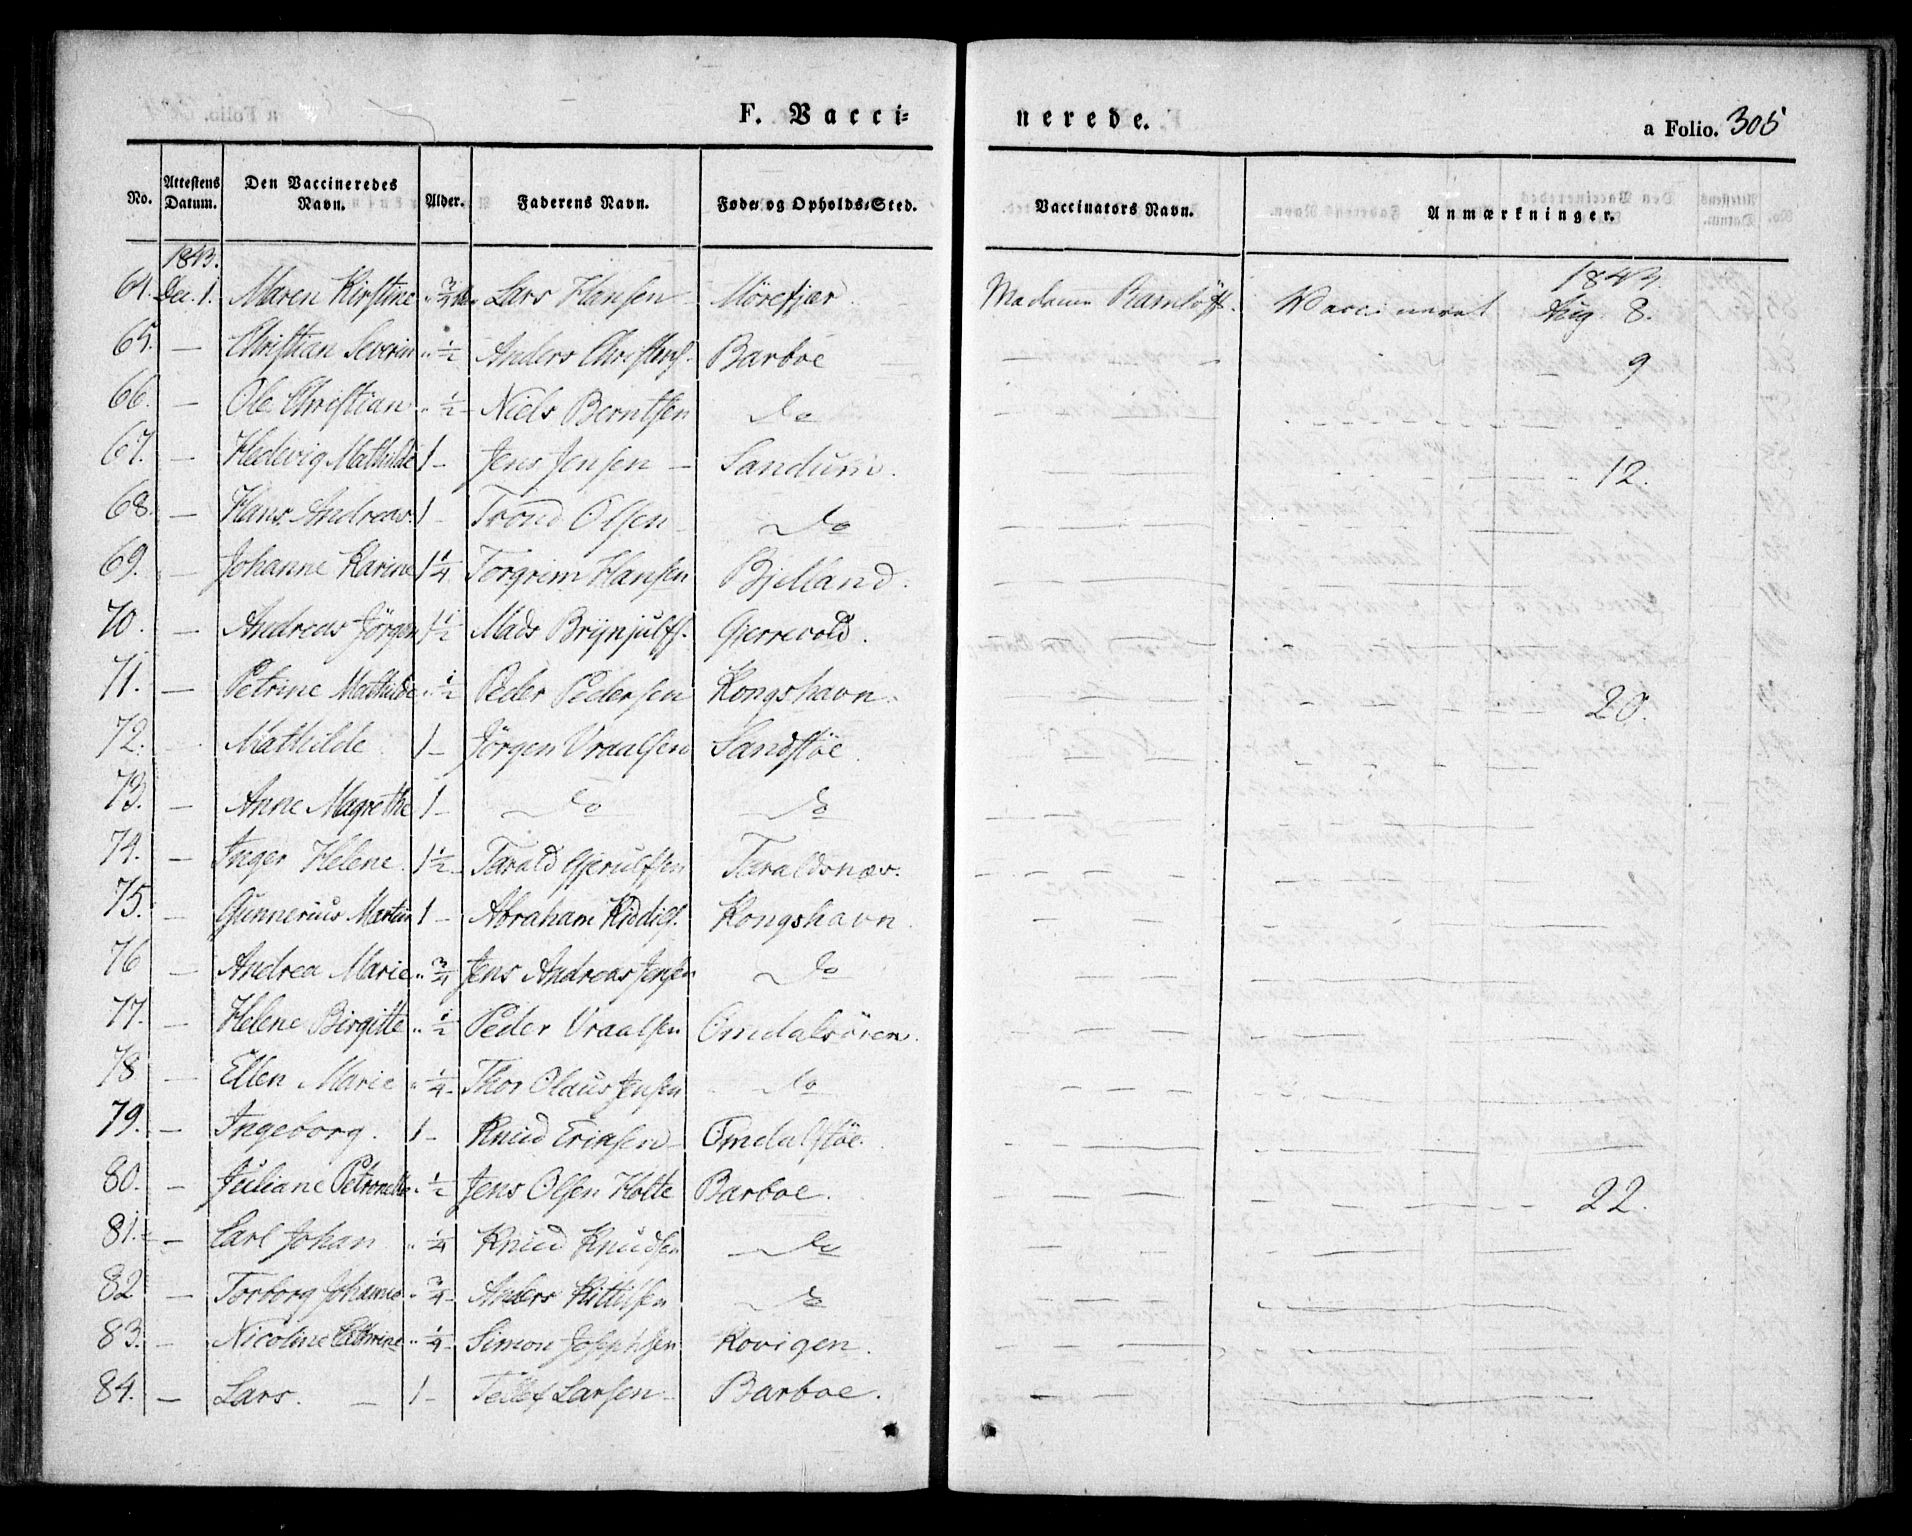 F. Vacci= nerede. a Folio. 305
No. Attestens Datum. Den Vaccineredes Navn. Alder. Faderens Navn. Føde= og Opholds=Sted. Vaccinators Navn. Anmærkninger.
1843. 1843.
64. Dec. 1. Maren Kirstine " 3/4 Lars Hansen Mörefjær. Madame Ramlöff. Vaccineret Aug 8.
65. — Christian Severin " 1/2 Anders Christens. Barboe — — — 9
66. — Ole Christian " 1/2 Niels Berntsen do
67. — Hedevig Mathilde 1 — Jens Jensen — Sandum. — — — 12.
68. — Hans Andreas. 1 — Trond Olsen do
69. — Johanne Karine 1 1/4 Torgrim Hansen Bjelland.
70. — Andreas Jörgen 1 1/2 Mads Brynjulfs. Gjerrevold.
71. — Petrine Mathilde " 1/2 Peder Pedersen Kongshavn. — — — 20.
72. — Mathilde 1 — Jörgen Vraalsen Sandstöe.
73. — Anne Magrethe 1 — do do
74. — Inger Helene. 1 1/2 — Tarald Gjerulfsen Taraldsnæs.
75. — Gunnerius Martin 1 — Abraham Kiddils. Kongshavn.
76 — Andrea Marie " 3/4 Jens Andreas Jensen do
77. — Helene Birgitte " 1/2 Peder Vraalsen Omdalsören.
78 — Ellen Marie " 1/4 Thor Olaus Jensen do
79. — Ingeborg. 1 — Knud Eriksen Omdalstöe.
80. — Juliane Petronelle " 1/2 Jens Olsen Holte Barboe. — — — 22.
81. — Carl Johan " 1/4 Knud Knudsen do
82 — Torborg Johanne " 3/4 Anders Kittilsen do
83. — Nicoline Cathrine " 1/4 Simon Josephsen Kovigen.
84. — Lars. — 1 — Tellef Larsen Barboe.